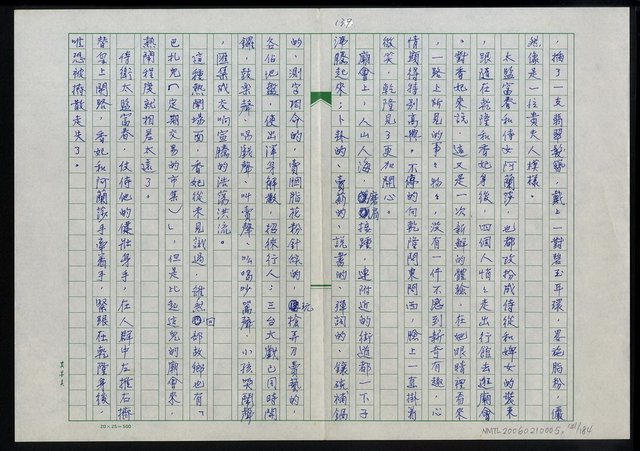 139
，插了一支翡翠髮簪，戴上一對碧玉耳環，略施脂粉，儼
然像是一位貴夫人模樣。
太監富春和侍女阿蘭莎，也都改扮成侍從和婢女的裝束
，跟隨在乾隆和香妃身後，四個人悄悄走出行館去逛廟會
。對香妃來說，這又是一次新鮮的體驗，在她眼睛裡看來
，一路上所見的事事物物，沒有一件不感到新奇有趣，心
情顯得特別高興。不停的向乾隆問東問西，臉上一直掛着
微笑，乾隆見了更加開心。
廟會上，人山人海，摩肩接踵，連附近的街道都一下子
沸騰起來；卜卦的、賣藥的、說書的、彈詞的、鑲碗補鍋
的、測字相命的，賣胭脂花粉針線的，玩槍弄刀賣藝的，
各佔地盤，使出渾身解數，招徠行人；三台大戲已同時開
鑼，鼓樂聲、唱戲聲、叫賣聲、吆喝吵罵聲、小孩哭鬧聲
，匯集成交响喧騰的浩蕩洪流。
這種熱鬧場面，香妃從未見識過，雖然回部故鄉也有「
巴扎兒（定期交易的市集）」，但是比起這兒的廟會來，
熱鬧程度就相差太遠了。
侍衛太監富春，仗恃他的健壯身手，在人群中左推右擠
替皇上開路，香妃和阿蘭莎手牽着手，緊跟在乾隆身後，
唯恐被擠散走失了。
20×25=500
NMTL20060210005, 141/184